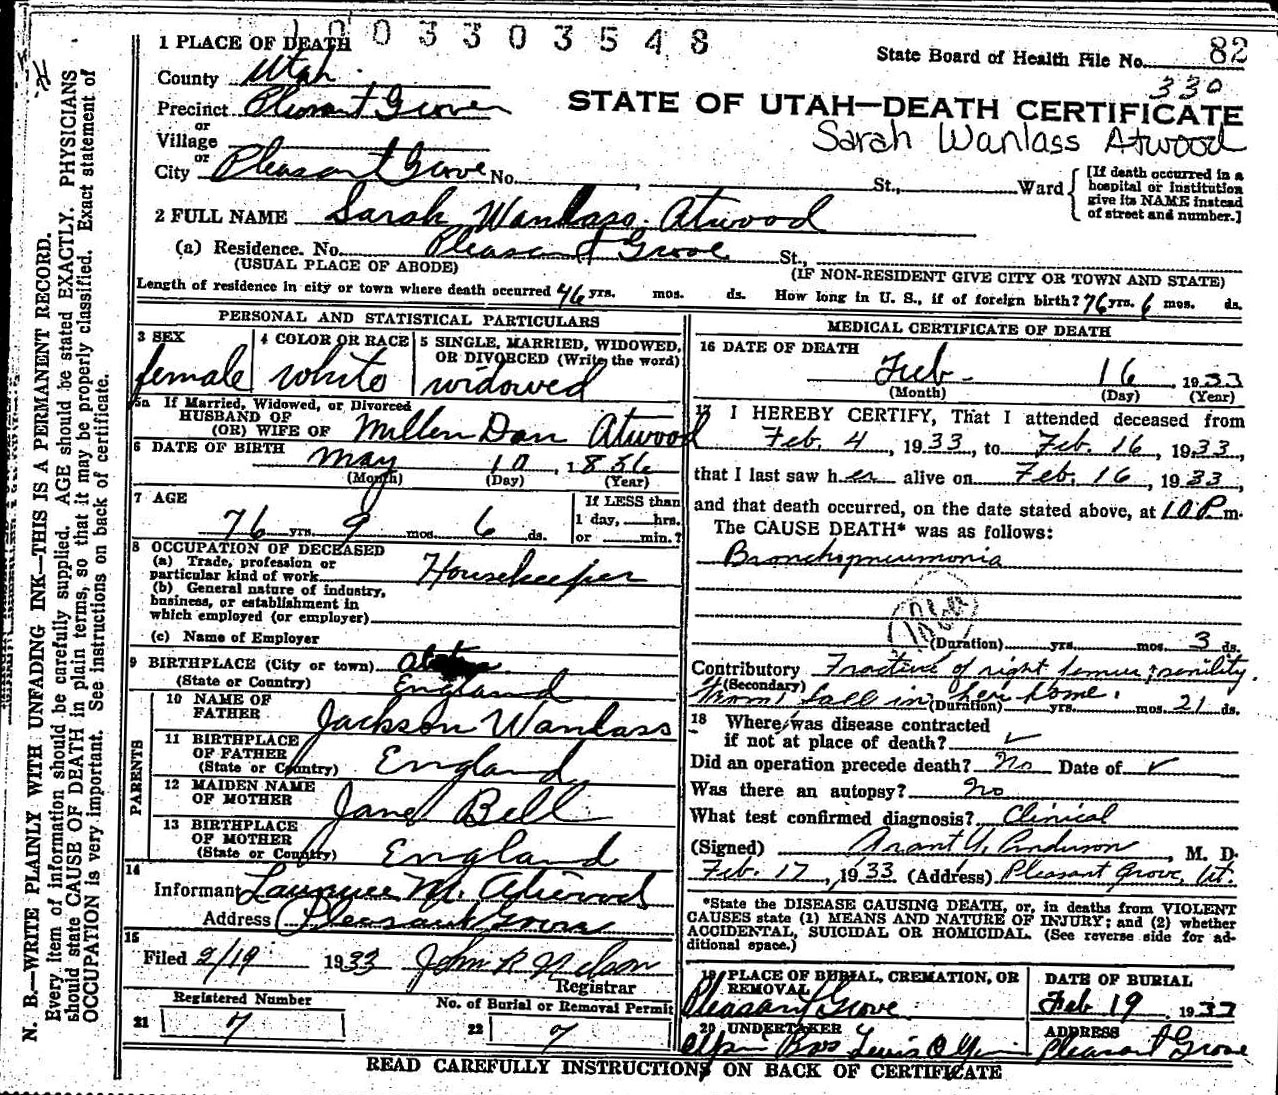 1 0 0 3 3 0 3 5 4 8
1 PLACE OF DEATH
State Board of Health File No. 82
330
County Utah
Precinct Pleasant Grove
STATE OF UTAH—DEATH CERTIFICATE
or
Village
Sarah Wanlass Atwood
or
City Pleasant Grove No. , St., Ward
[If death occurred in a hospital or institution give its NAME instead of street and number.]
2 FULL NAME Sarah Wanlass Atwood
(a) Residence. No. Pleasant Grove St.,
(USUAL PLACE OF ABODE) (IF NON-RESIDENT GIVE CITY OR TOWN AND STATE)
Length of residence in city or town where death occurred 46 yrs. mos. ds. How long in U. S., if of foreign birth? 76 yrs. 6 mos. ds.
PERSONAL AND STATISTICAL PARTICULARS
3 SEX female
4 COLOR OR RACE white
5 SINGLE, MARRIED, WIDOWED, OR DIVORCED (Write the word) widowed
5a If Married, Widowed, or Divorced
HUSBAND OF
(OR) WIFE OF Millen Dan Atwood
6 DATE OF BIRTH May 10, 1856
(Month) (Day) (Year)
7 AGE
76 yrs. 9 mos. 6 ds.
If LESS than
1 day, hrs.
or min.?
8 OCCUPATION OF DECEASED
(a) Trade, profession or
particular kind of work Housekeeper
(b) General nature of industry,
business, or establishment in
which employed (or employer)
(c) Name of Employer
9 BIRTHPLACE (City or town)
(State or Country) England
PARENTS
10 NAME OF FATHER Jackson Wanlass
11 BIRTHPLACE OF FATHER
(State or Country) England
12 MAIDEN NAME OF MOTHER Jane Bell
13 BIRTHPLACE OF MOTHER
(State or Country) England
14
Informant Laurence M. Atwood
Address Pleasant Grove
15
Filed 2/19 1933 John R Nelson
Registrar
Registered Number
21 7
No. of Burial or Removal Permit
22 7
MEDICAL CERTIFICATE OF DEATH
16 DATE OF DEATH
Feb. 16, 1933
(Month) (Day) (Year)
17 I HEREBY CERTIFY, That I attended deceased from
Feb. 4, 1933, to Feb. 16, 1933,
that I last saw her alive on Feb. 16, 1933,
and that death occurred, on the date stated above, at 10 P m.
The CAUSE DEATH* was as follows:
Bronchopneumonia
(Duration) yrs. mos. 3 ds.
Contributory Fracture of right femur; senility.
(Secondary) from fall in her home.
(Duration) yrs. mos. 21 ds.
18 Where was disease contracted
if not at place of death? ✓
Did an operation precede death? No Date of ✓
Was there an autopsy? No
What test confirmed diagnosis? Clinical
(Signed) Grant Y. Anderson, M. D.
Feb. 17, 1933 (Address) Pleasant Grove, Ut.
*State the DISEASE CAUSING DEATH, or, in deaths from VIOLENT
CAUSES state (1) MEANS AND NATURE OF INJURY; and (2) whether
ACCIDENTAL, SUICIDAL OR HOMICIDAL. (See reverse side for ad-
ditional space.)
19 PLACE OF BURIAL, CREMATION, OR REMOVAL
Pleasant Grove
DATE OF BURIAL
Feb 19, 1933
20 UNDERTAKER
Olpin Bros Lewis Olpin
ADDRESS
Pleasant Grove
READ CAREFULLY INSTRUCTIONS ON BACK OF CERTIFICATE
N. B.—WRITE PLAINLY WITH UNFADING INK—THIS IS A PERMANENT RECORD.
Every item of information should be carefully supplied. AGE should be stated EXACTLY. PHYSICIANS
should state CAUSE OF DEATH in plain terms, so that it may be properly classified. Exact statement of
OCCUPATION is very important. See instructions on back of certificate.